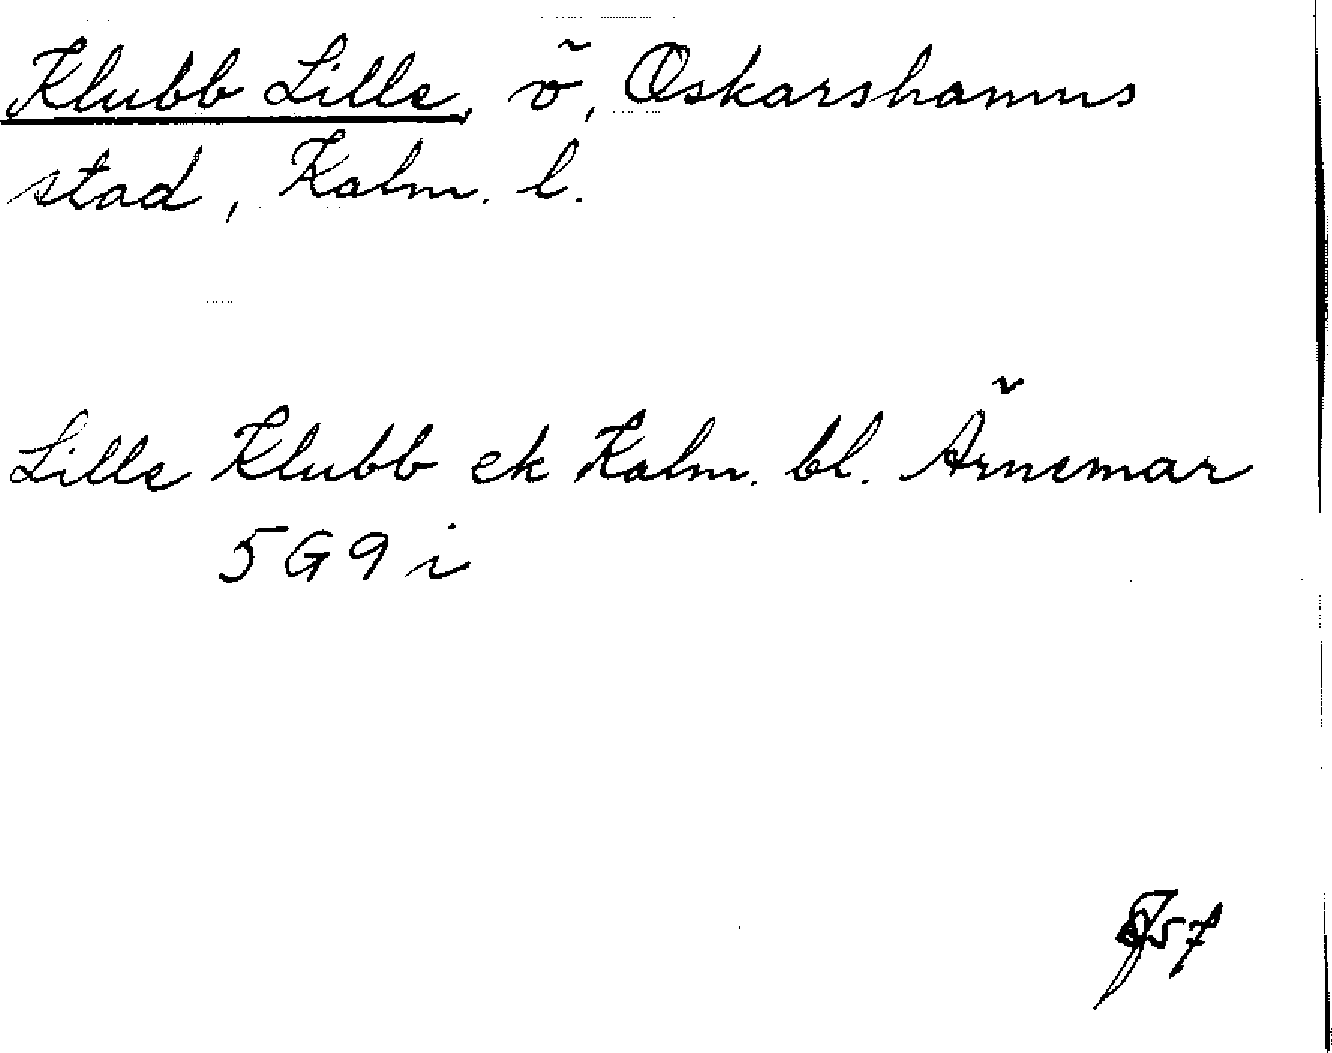 Klubb Lille, ö, Oskarshamns
stad, Kalm. l.
Lille Klubb ek Kalm. bl. Ärnemar
5G9i